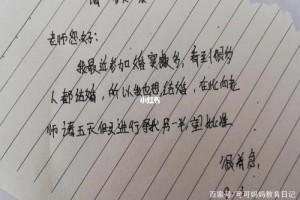 老师您好:
我最近参加婚宴颇多,看到很多
人都结婚,所以我也想结婚,在此向老
师请五天假进行寻找另一半,望批准
很着急
小红书
百家号/可可妈妈教育日记